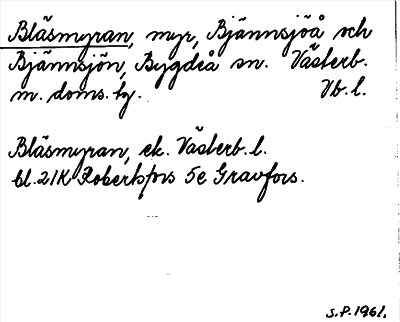 Bläsmyran, myr, Bjännsjöå och
Bjännsjön, Bygdeå sn. Västerb.
m. doms. hg. Vb. l.
Bläsmyran, ek. Västerb. l.
bl. 21K Robertsfors 5e Gravfors.
S.P. 1961.